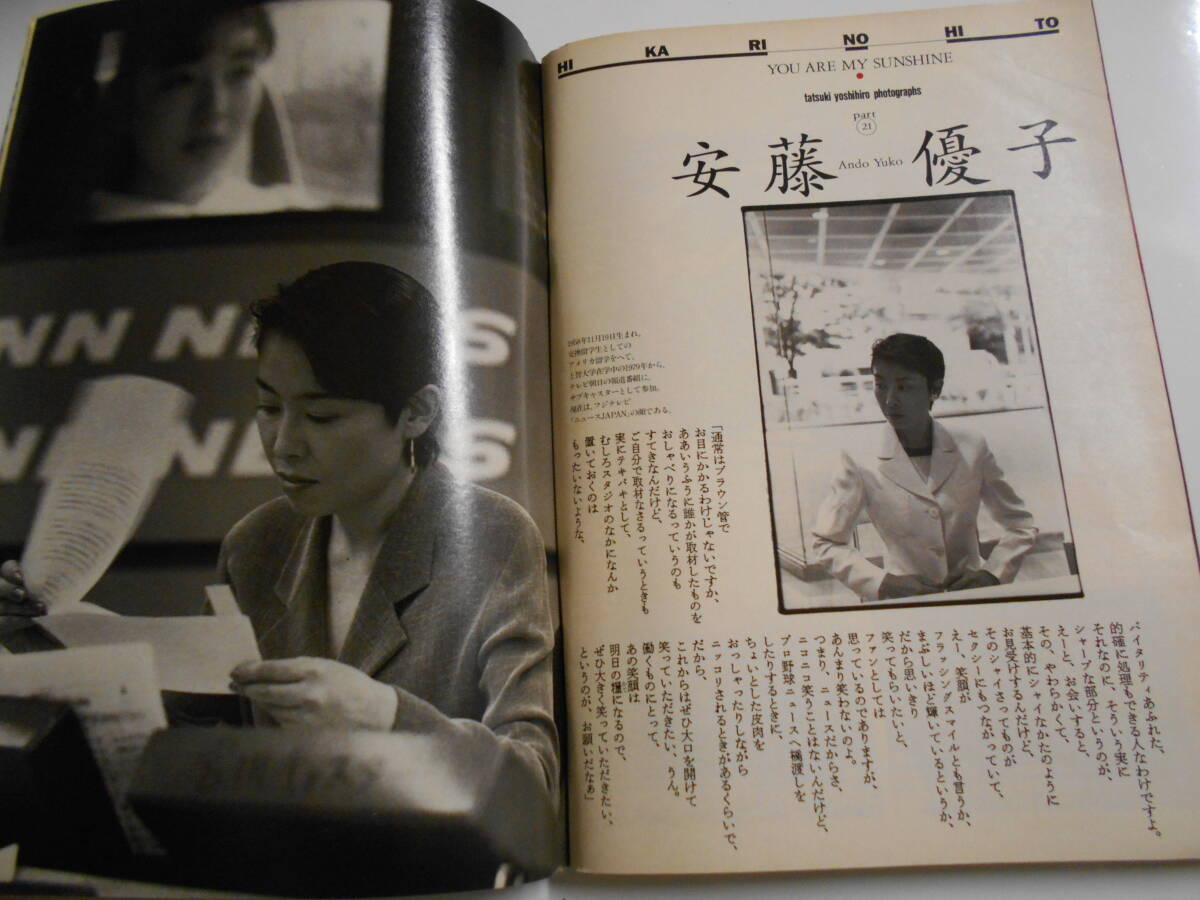 HI KA RI NO HI TO
YOU ARE MY SUNSHINE
tatsuki yoshihiro photographs
part
21
安藤 Ando Yuko 優子
1958年11月19日生まれ。
交換留学生としての
アメリカ留学をへて、
上智大学在学中の1979年から、
テレビ朝日の報道番組に、
サブキャスターとして参加。
現在は、フジテレビ
「ニュースJAPAN」の顔である。
「通常はブラウン管で
お目にかかるわけじゃないですか、
ああいうふうに誰かが取材したものを
おしゃべりになるっていうのも
すてきなんだけど、
ご自分で取材なさるっていうときも
実にテキパキとして、
むしろスタジオのなかになんか
置いておくのは
もったいないような、
バイタリティあふれた、
的確に処理もできる人なわけですよ。
それなのに、そういう実に
シャープな部分というのが、
えーと、お会いすると、
その、やわらかくて、
基本的にシャイなかたのように
お見受けするんだけど、
そのシャイさってものが
セクシーにもつながっていて、
えー、笑顔が
フラッシングスマイルとも言うか、
まぶしいほど輝いているというか、
だから思いきり
笑ってもらいたいと、
ファンとしては
思っているのでありますが、
あんまり笑わないのよ。
つまり、ニュースだからさ、
ニコニコ笑うことはないんだけど、
プロ野球ニュースへ橋渡しを
したりするときに、
ちょいとした皮肉を
おっしゃったりしながら
ニッコリされるときがあるくらいで、
だから、
これからはぜひ大口を開けて
笑っていただきたい、うん。
働くものにとって、
あの笑顔は
明日の糧になるので、
ぜひ大きく笑っていただきたい、
というのが、お願いだなぁ」
NN NE S
NN NE S